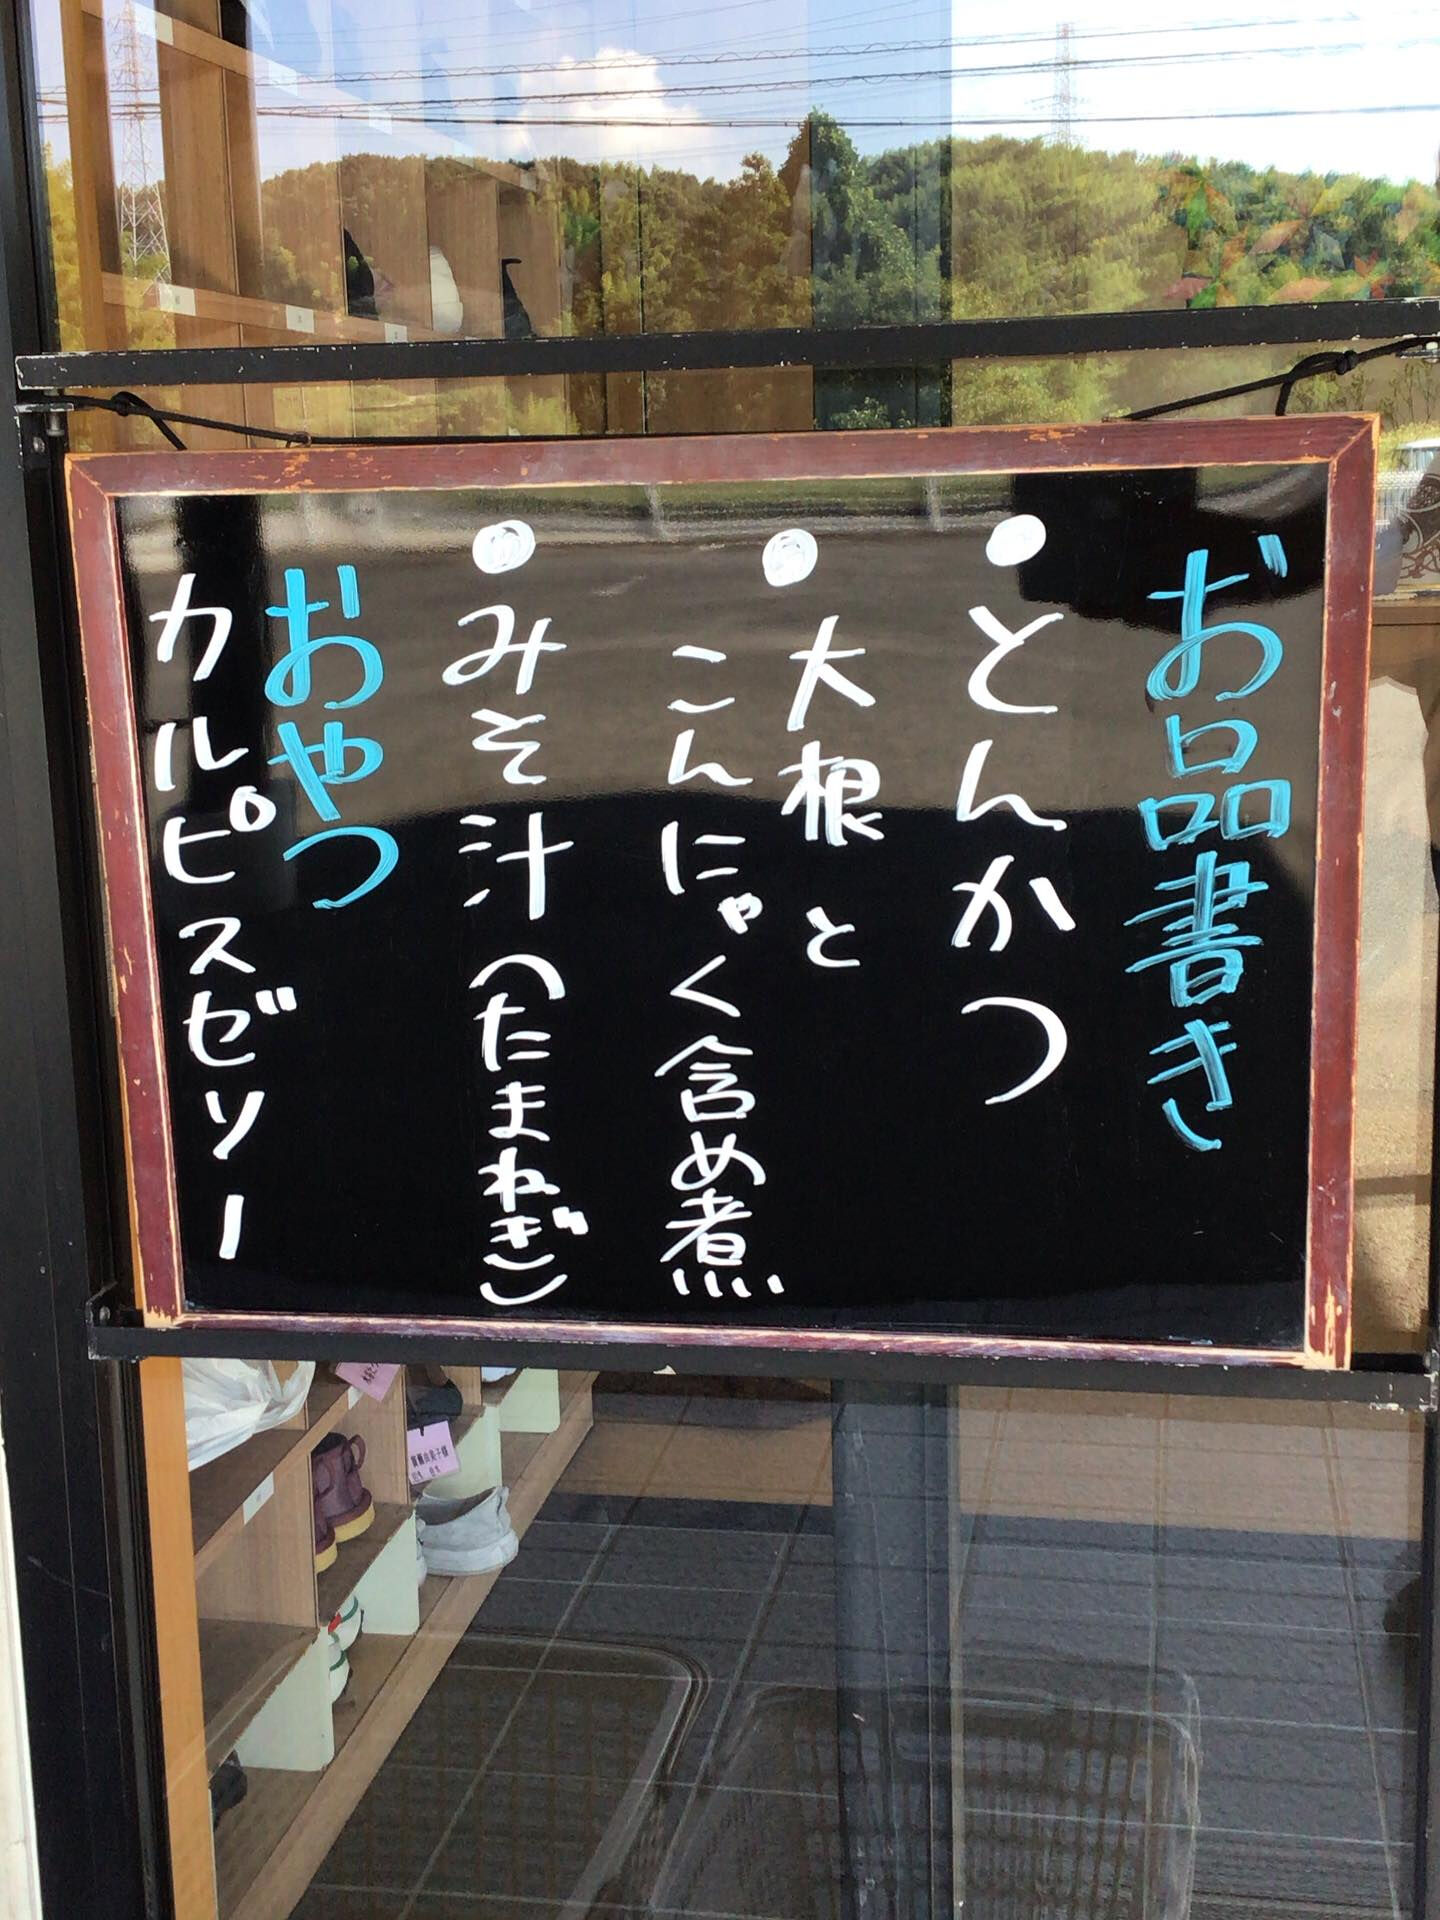 お品書き
●とんかつ
●大根と
こんにゃく含め煮
●みそ汁(たまねぎ)
おやつ
カルピスゼリー